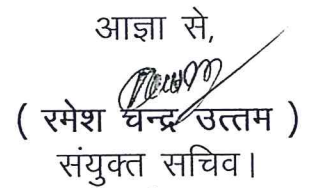 आज्ञा से,
( रमेश चन्द्र उत्तम )
संयुक्त सचिव।